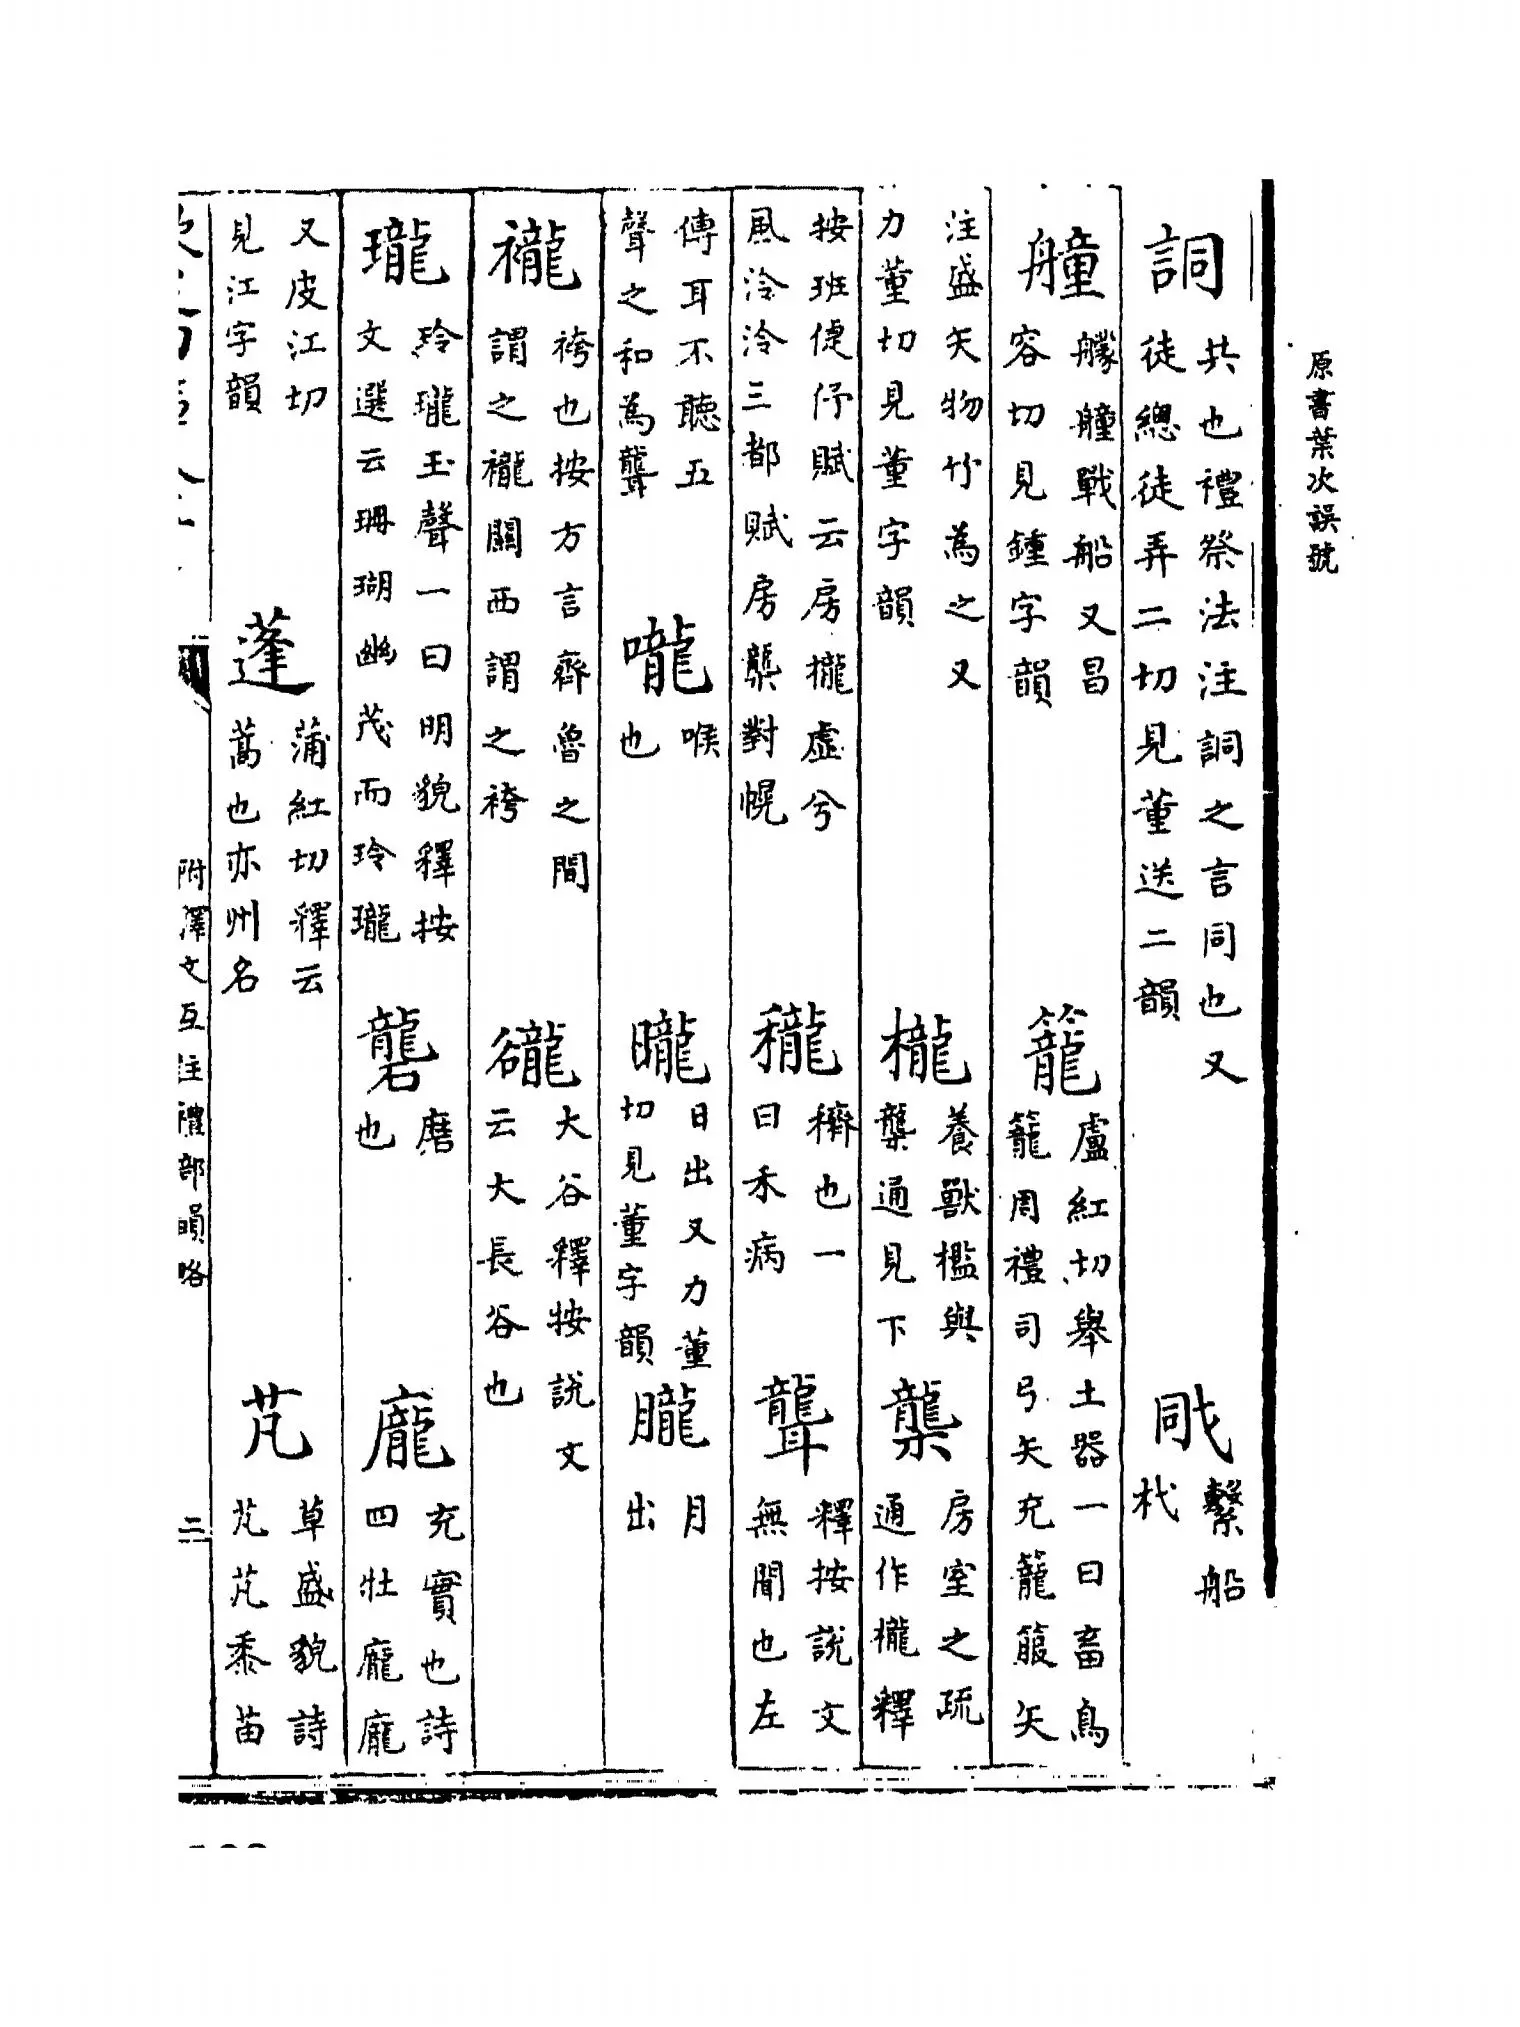 原書葉次誤號
詷共也禮祭法注詷之言同也又徒總徒弄二切見董送二韻 𢧌繫船杙
艟艨艟戰船又昌容切見鍾字韻 籠盧紅切舉土器一曰畜鳥籠周禮司弓矢充籠箙矢
注盛矢物竹為之又力董切見董字韻 櫳養獸檻與龒通見下 龒房室之疏通作櫳釋
按班倢伃賦云房櫳虛兮風泠泠三都賦房龒對幌 穲穧也一曰禾病 聾釋按說文無聞也左
傳耳不聽五聲之和為聾 嚨喉也 曨日出又力董切見董字韻 朧月出
襱袴也按方言齊魯之間謂之襱關西謂之袴 谾大谷釋按說文云大長谷也
瓏玲瓏玉聲一曰明貌釋按文選云珊瑚幽茂而玲瓏 礱磨也 龐充實也詩四壯龐龐
又皮江切見江字韻 蓬蒲紅切釋云蒿也亦州名 芃草盛貌詩芃芃黍苗
附澤文互註禮部韻略 二